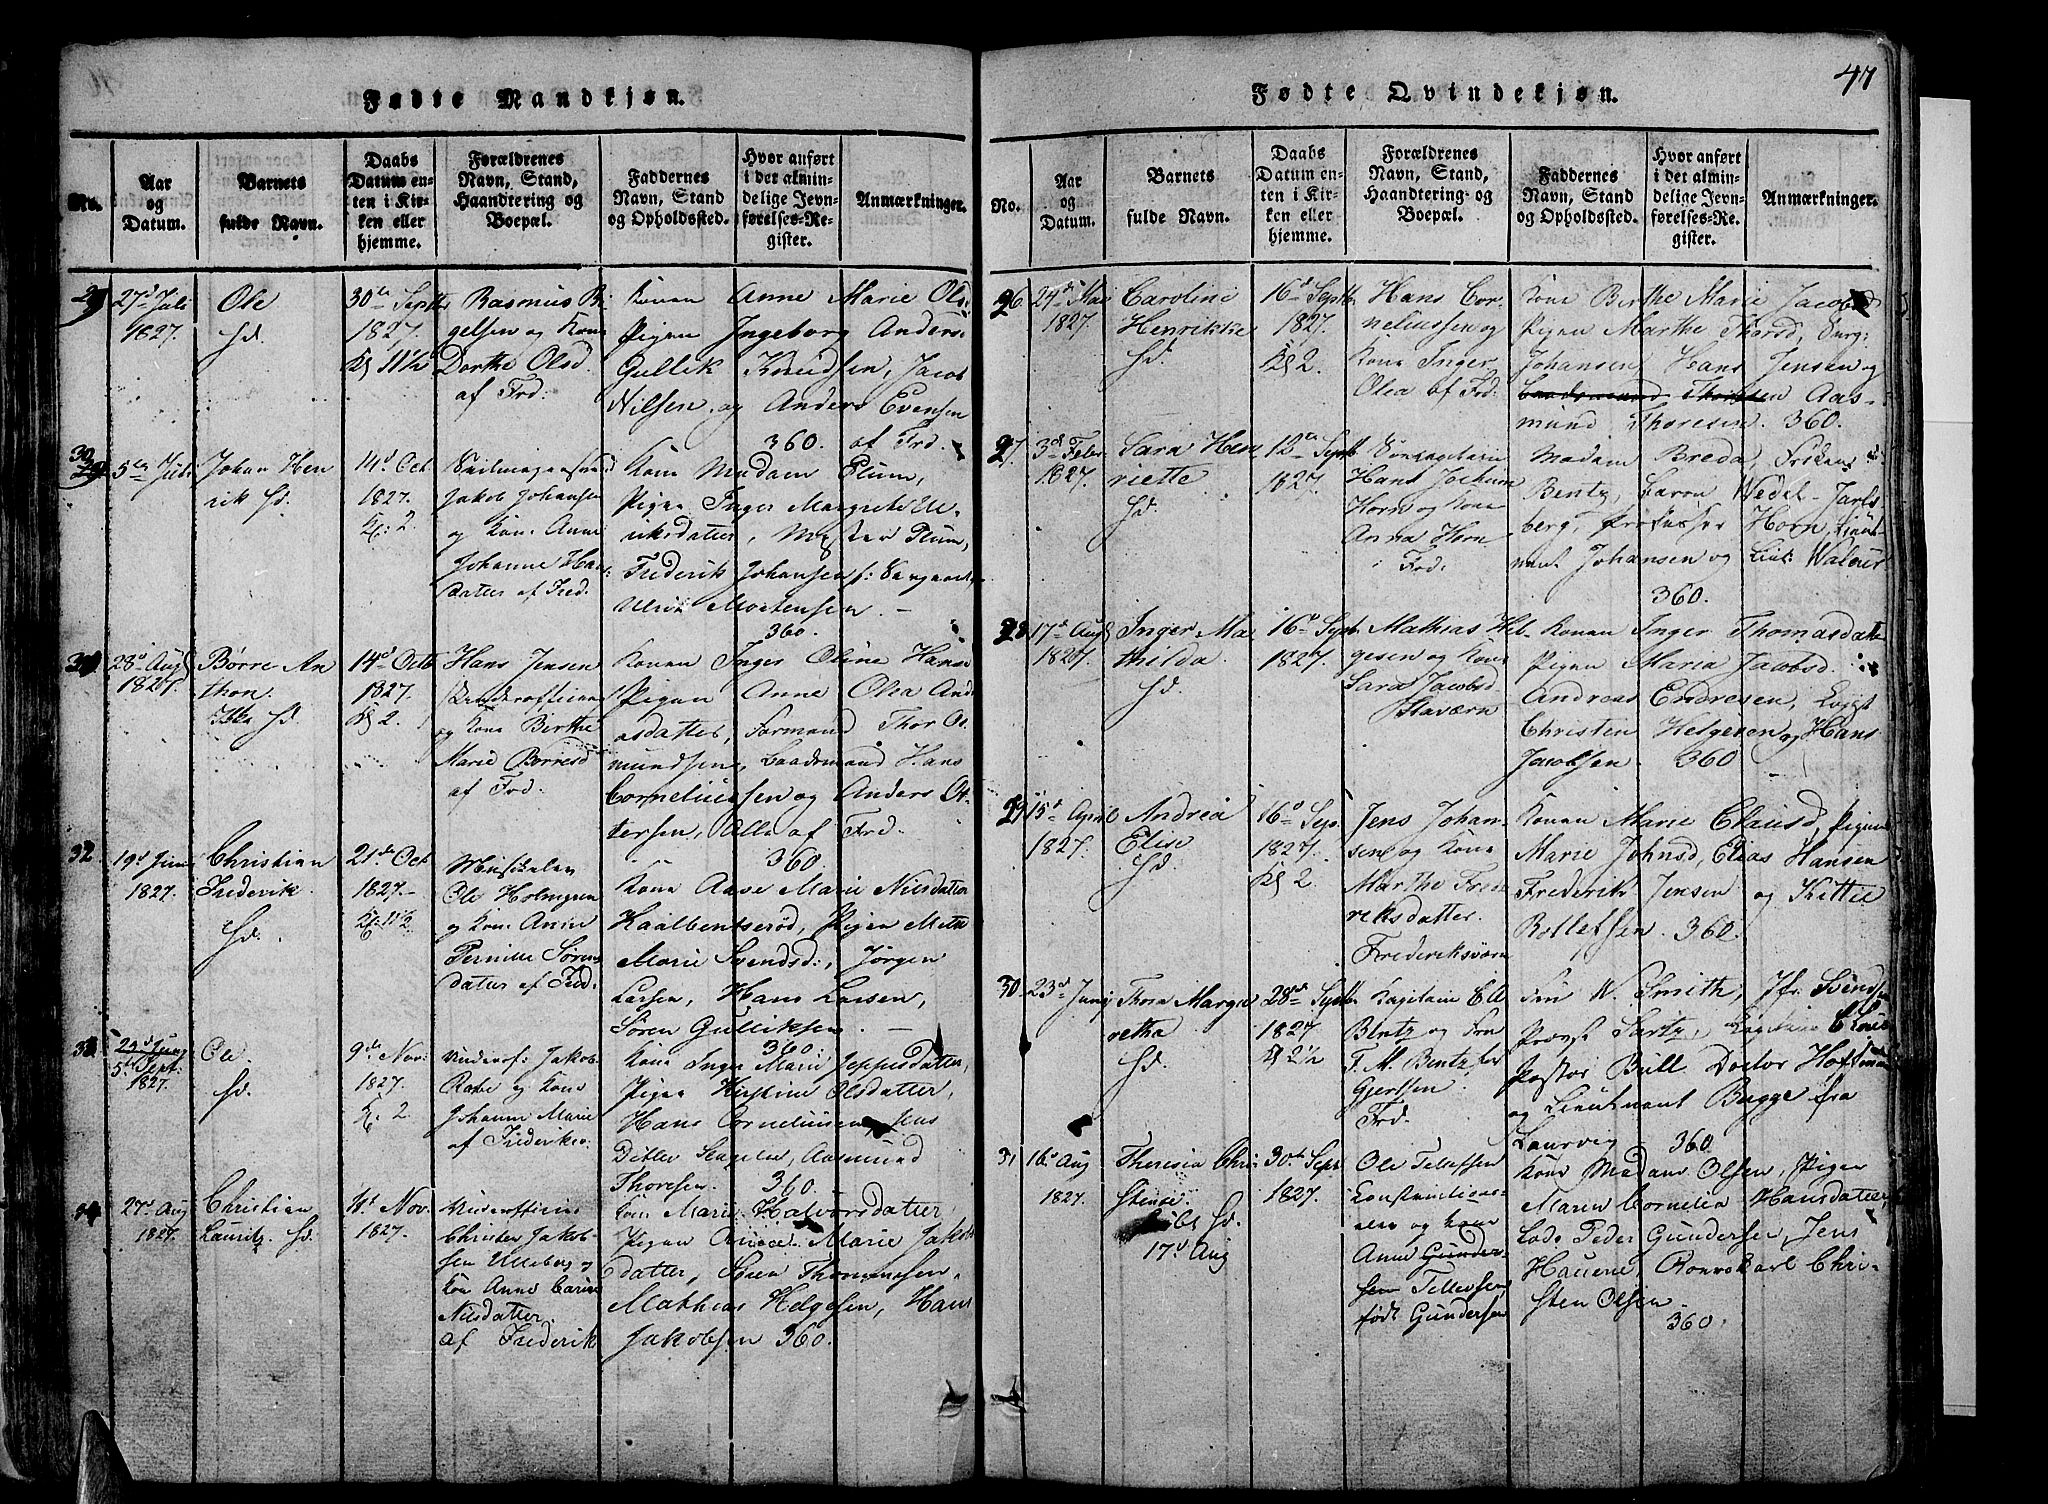 47
Fødte Mandkjøn.
No.
Aar
og
Datum.
Barnets
fulde Navn.
Daabs
Datum en-
ten i Kir-
ken eller
hjemme.
Forældrenes
Navn, Stand,
Haandtering og
Boepæl.
Faddernes
Navn, Stand
og Opholdssted.
Hvor anført
i det almin-
delige Jevn-
førelses-Re-
gister.
Anmærkninger.
29
27d Juli
1827.
Ole
hd.
30te Septbr
1827.
Kl 11½
Rasmus Bi-
gelsen og Kone
Dorthe Olsd.
af Frd:
Konen Anne Marie Olsd.
Pigen Ingeborg Anders:
Gullik Knudsen, Jacob
Nilsen og Anders Evensen
360. af Frd.
30
5te Juli
Johan Hen
rik hd.
14d Oct
1827.
Kl: 2.
Jakob Johansen
og Kone Anne
Johanne Han
datter af Fred.
Kone Madam Plum,
Pigen Inger Margrethe Ul-
riksdatter, Mester Plum,
Frederik Johansen
Ulrik Mortensen. —
360.
31
28d Aug
1827.
Børre An
thon
hd.
14d Octb
1827.
Kl 2.
Hans Jensen
Underofficeer
og Kone Birthe
Marie Børresd
af Frd.
Konen Inger Oline Hansd
Pigen Anne Olea And
dsdatter, Formand Thor As
mundsen, Baadsmand Hans
Corneliussen og Anders Ot-
tersen, Alle af Frd.
360
32
19d Juni
1827.
Christian
Frederik
hd.
21de Oct
1827.–
Kl: 11½
Ole Holmgren
og Kone Anne
Pernille Søren
datter af Fred.
Kone Anne Marie Nilsdatter
Haalbentserød, Pigen Mette
Marie Svendsd:, Jørgen
Larsen, Hans Larsen,
Søren Gulliksen. —
360.
33
5te Sept:
1827.
Ole
hd.
9de Nov:
1827.
Kl. 2
Underof: Jakob
og Kone
Johanne Marie
af Frederiksv:
Kone Inger Marie Jeppesdatter,
Pigen Kirstine Olsdatter,
Hans Corneliussen, Jens
Ditlev Aasmund
Thoresen. 360.
34
27d Aug
1827.
Christian
Lauritz hd.
11d Nov.
1827.
Underofficeer
Christen Jakob-
sen Ulleberg og
Kone Anne Carine
Nilsdatter.
af Frederik
Kone Marie Halvorsdatter,
Pigen Anne Marie Jakobs
datter, Søren Thommesen,
Mathias Helgesen, Hans
Jakobsen 360.
Fødte Qvindekjøn.
No.
Aar
og
Datum.
Barnets
fulde Navn.
Daabs
Datum en-
ten i Kir-
ken eller
hjemme.
Forældrenes
Navn, Stand,
Haandtering og
Boepæl.
Faddernes
Navn, Stand
og Opholdssted.
Hvor anført
i det almin-
delige Jevn-
førelses-Re-
gister.
Anmærkninger.
26
29d Mai
1827.
Caroline
Henrikke
hd.
16d Septb
1827.
Kl 2.
Hans Cor-
neliussen og
Kone Inger
Olea af Frd:
Kone Birthe Marie Jacobsd
Pigen Marthe Thorsd,
Johansen Hans Jensen og
Baadsmand Thorsten Aas-
mund Thoresen. 360.
27
3d Febr
1827.
Sara Hen
riette
hd.
12te Septb
1827.
Hans Jochum
Horn og Kone
Anna Horn
i Frd:
Madam Breda, Frøken
Bentz, Baron Wedel-Jarls
berg, Professor Horn,
nant Johansen og Lieut:
360.
28
17d Aug
1827.
Inger Ma
thilda
hd.
16d Sept.
1827.
Mathias Hel
gesen og Kone
Sara Jacobsd
Staværn
Konen Inger Thomasdatter
Pigen Maria Jacobsd.
Andreas Endresen,
Christen Helgesen og Hans
Jacobsen 360
29
15d April
1827.
Andrea
Elise
hd.
16d Sep.
1827.
Kl 2
Jens Johan-
sen og Kone
Marthe Fred
reksdatter.
Frederiksværn
Konen Marie Clausd, Pigen
Marie Johnsd, Elias Hansen
Frederik Jensen og Kittil
Rollefsen. 360.
30
23d Juny
Thora Margre
retha
hd.
28de Septbr
1827.
Kl 2½
Kapitain
Bentz og Fru
F. M. Bentz før
Gjertsen
Frd.
Fru W. Smith, Jfr.
Provst Sartz,
Pastor Bull Doctor Hoffman
og Lieutnant Bugge fra
Laurvig 360
31
16d Aug
1827.
Theresia Chri
stense
hd.
17d Aug
30te Sept.
1827.
Ole Tellefsen
og Kone
Anne Gunder-
sen Tellefsen
født Gundersen
Kone Madam Olsen, Pigen
Maren Cornelia Hansdatter,
Lods Peder Gundersen, Jens
Hauene, Chri-
sten Olsen
360.